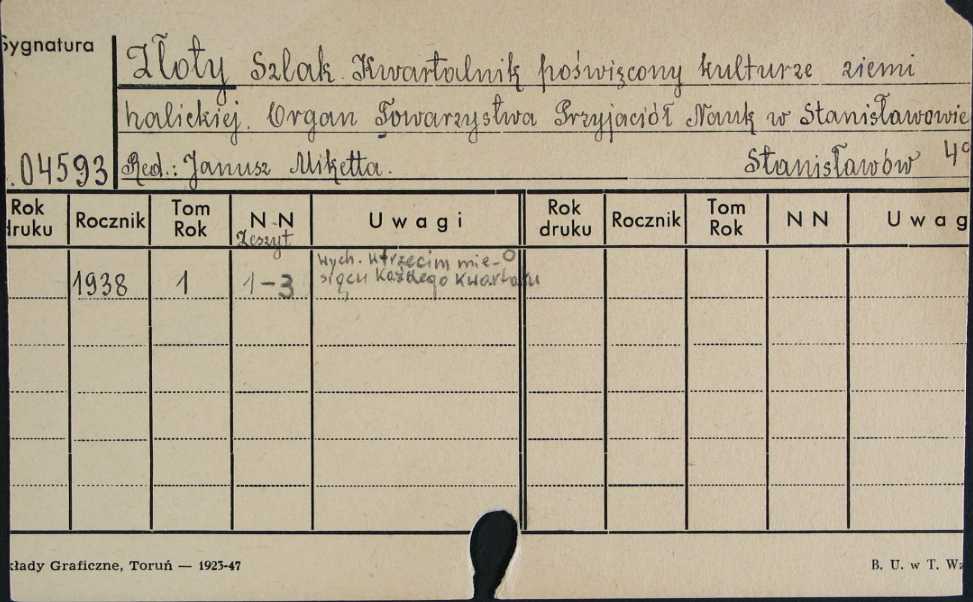 Sygnatura
Złoty Szlak. Kwartalnik poświęcony kulturze ziemi
halickiej. Organ Towarzystwa Przyjaciół Nauk w Stanisławowie
.04593 Red.: Janusz Miketta. Stanisławów 4º
Rok druku Rocznik Tom Rok N-N Zeszyt Uwagi Rok druku Rocznik Tom Rok N N Uwag
1938 1 1-3 wych. w trzecim mie-
siącu każdego kwartału
kłady Graficzne, Toruń — 1923-47 B. U. w T. Wz